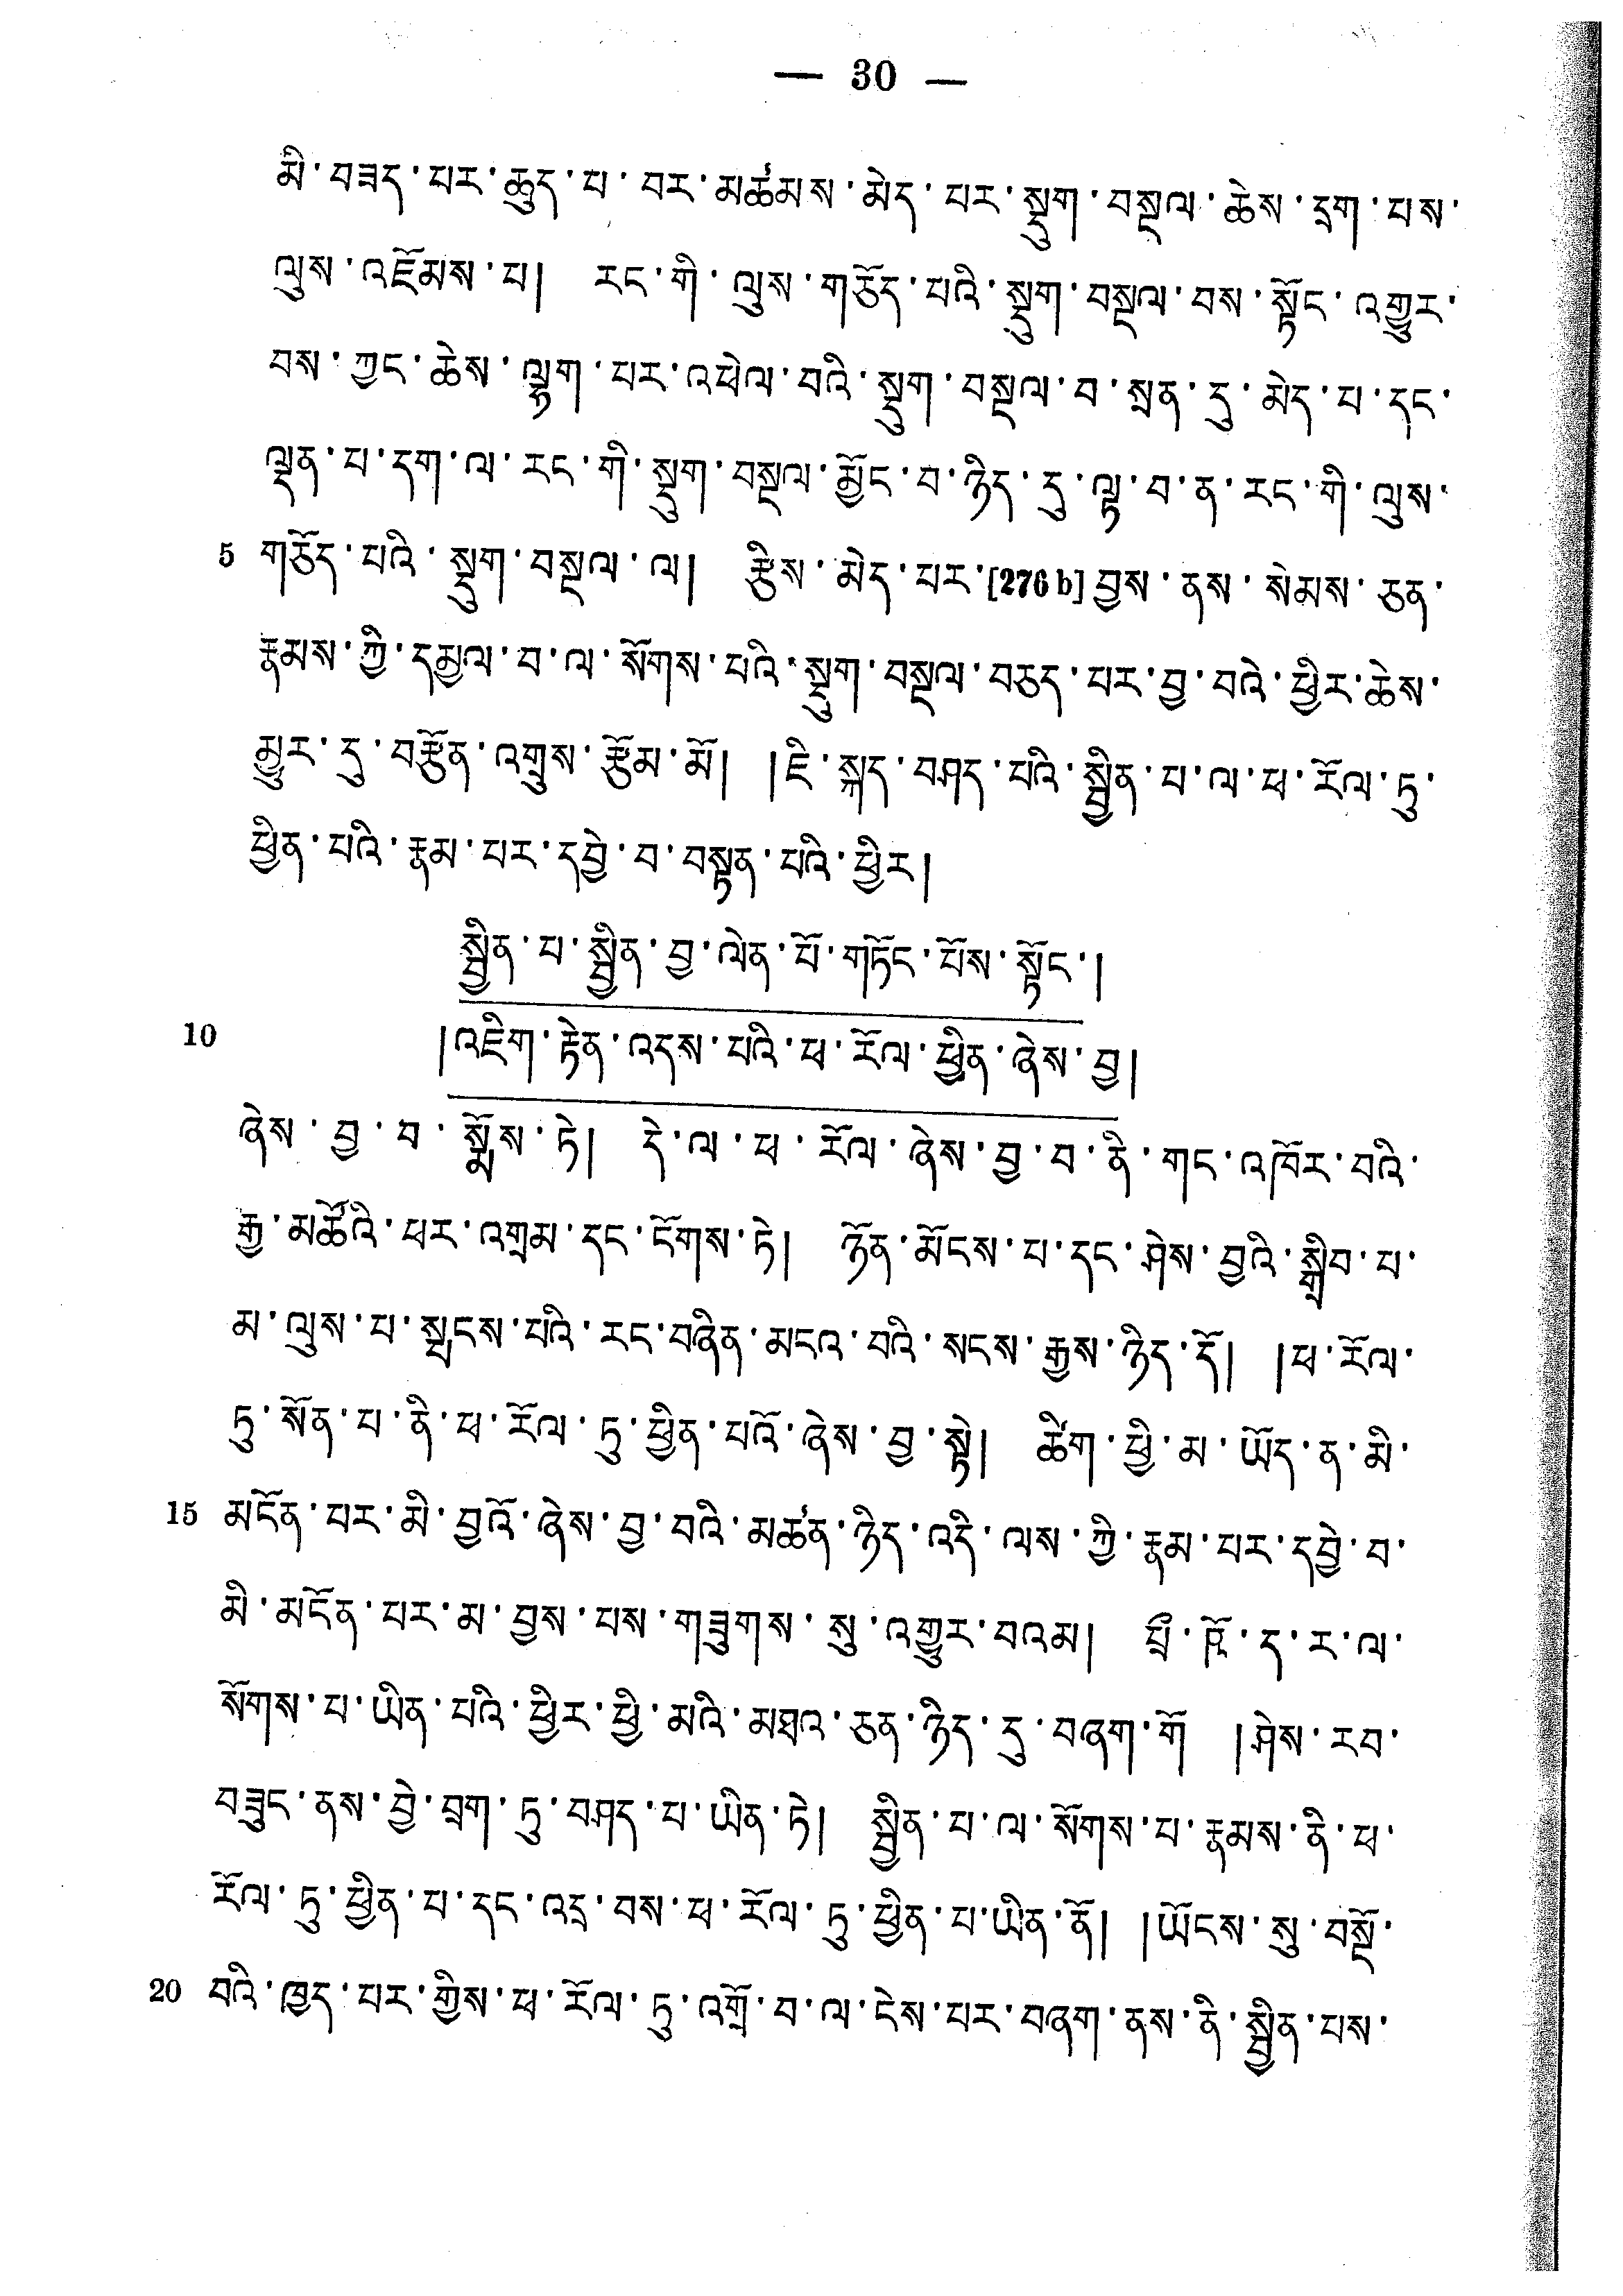 — 30 —
མི་བཟད་པར་ཆུད་པ་བར་མཚམས་མེད་པར་སྡུག་བསྔལ་ཆེས་དྲག་པས་
ལུས་འཇོམས་པ། རང་གི་ལུས་གཅོད་པའི་སྡུག་བསྔལ་བས་སྟོང་འགྱུར་
བས་ཀྱང་ཆེས་ལྷག་པར་འཕེལ་བའི་སྡུག་བསྔལ་བ་སྲན་དུ་མེད་པ་དང་
ལྡན་པ་དག་ལ་རང་གི་སྡུག་བསྔལ་མྱོང་བ་ཉིད་དུ་ལྟ་བ་ན་རང་གི་ལུས་
5 གཅོད་པའི་སྡུག་བསྔལ་ལ། རྩིས་མེད་པར་[276 b]བྱས་ནས་སེམས་ཅན་
རྣམས་ཀྱི་དམྱལ་བ་ལ་སོགས་པའི་སྡུག་བསྔལ་བཅད་པར་བྱ་བའི་ཕྱིར་ཆེས་
མྱུར་དུ་བརྩོན་འགྲུས་རྩོམ་མོ། །ཇི་སྐད་བཤད་པའི་སྦྱིན་པ་ལ་ཕ་རོལ་ཏུ་
ཕྱིན་པའི་རྣམ་པར་དབྱེ་བ་བསྟན་པའི་ཕྱིར།
སྦྱིན་པ་སྦྱིན་བྱ་ལེན་པོ་གཏོང་པོས་སྟོང་།
10 །འཇིག་རྟེན་འདས་པའི་ཕ་རོལ་ཕྱིན་ཞེས་བྱ།
ཞེས་བྱ་བ་སྨོས་ཏེ། དེ་ལ་ཕ་རོལ་ཞེས་བྱ་བ་ནི་གང་འཁོར་བའི་
རྒྱ་མཚོའི་ཕར་འགྲམ་དང་ངོགས་ཏེ། ཉོན་མོངས་པ་དང་ཤེས་བྱའི་སྒྲིབ་པ་
མ་ལུས་པ་སྤངས་པའི་རང་བཞིན་མངའ་བའི་སངས་རྒྱས་ཉིད་དོ། །ཕ་རོལ་
ཏུ་སོན་པ་ནི་ཕ་རོལ་ཏུ་ཕྱིན་པའོ་ཞེས་བྱ་སྟེ། ཚིག་ཕྱི་མ་ཡོད་ན་མི་
15 མངོན་པར་མི་བྱའོ་ཞེས་བྱ་བའི་མཚན་ཉིད་འདི་ལས་ཀྱི་རྣམ་པར་དབྱེ་བ་
མི་མངོན་པར་མ་བྱས་པས་གཟུགས་སུ་འགྱུར་བའམ། པྲྀ་ཥོ་ད་ར་ལ་
སོགས་པ་ཡིན་པའི་ཕྱིར་ཕྱི་མའི་མཐའ་ཅན་ཉིད་དུ་བཞག་གོ །ཤེས་རབ་
བཟུང་ནས་བྱེ་བྲག་ཏུ་བཤད་པ་ཡིན་ཏེ། སྦྱིན་པ་ལ་སོགས་པ་རྣམས་ནི་ཕ་
རོལ་ཏུ་ཕྱིན་པ་དང་འདྲ་བས་ཕ་རོལ་ཏུ་ཕྱིན་པ་ཡིན་ནོ། །ཡོངས་སུ་བསྔོ་
20 བའི་ཁྱད་པར་གྱིས་ཕ་རོལ་ཏུ་འགྲོ་བ་ལ་ངེས་པར་བཞག་ནས་ནི་སྦྱིན་པས་